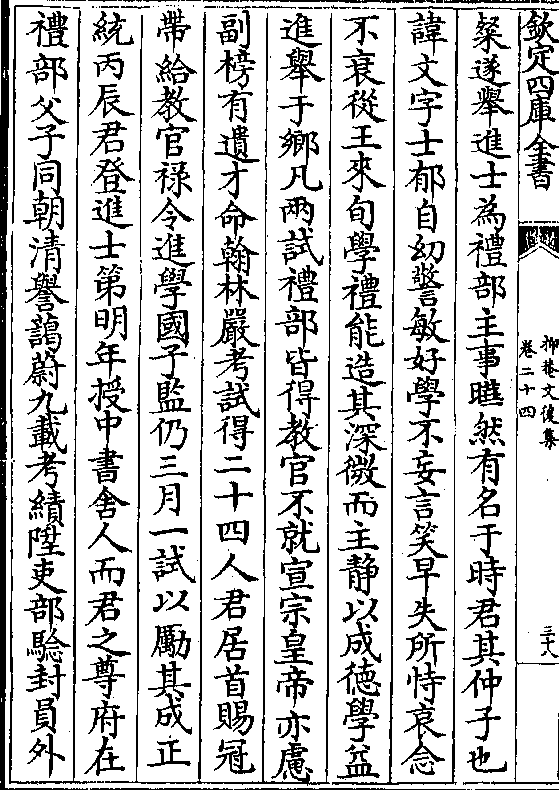 欽定四庫全書
抑菴文後集
卷二十四
三十八
粲遂舉進士為禮部主事曄然有名于時君其仲子也
諱文字士郁自幼警敏好學不妄言笑早失所恃哀念
不衰從王來旬學禮能造其深微而主静以成德學益
進舉于鄉凡兩試禮部皆得教官不就宣宗皇帝亦慮
副榜有遺才命翰林嚴考試得二十四人君居首賜冠
帶給教官禄令進學國子監仍三月一試以勵其成正
統丙辰君登進士第明年授中書舍人而君之尊府在
禮部父子同朝清譽藹蔚九載考績陞吏部驗封員外